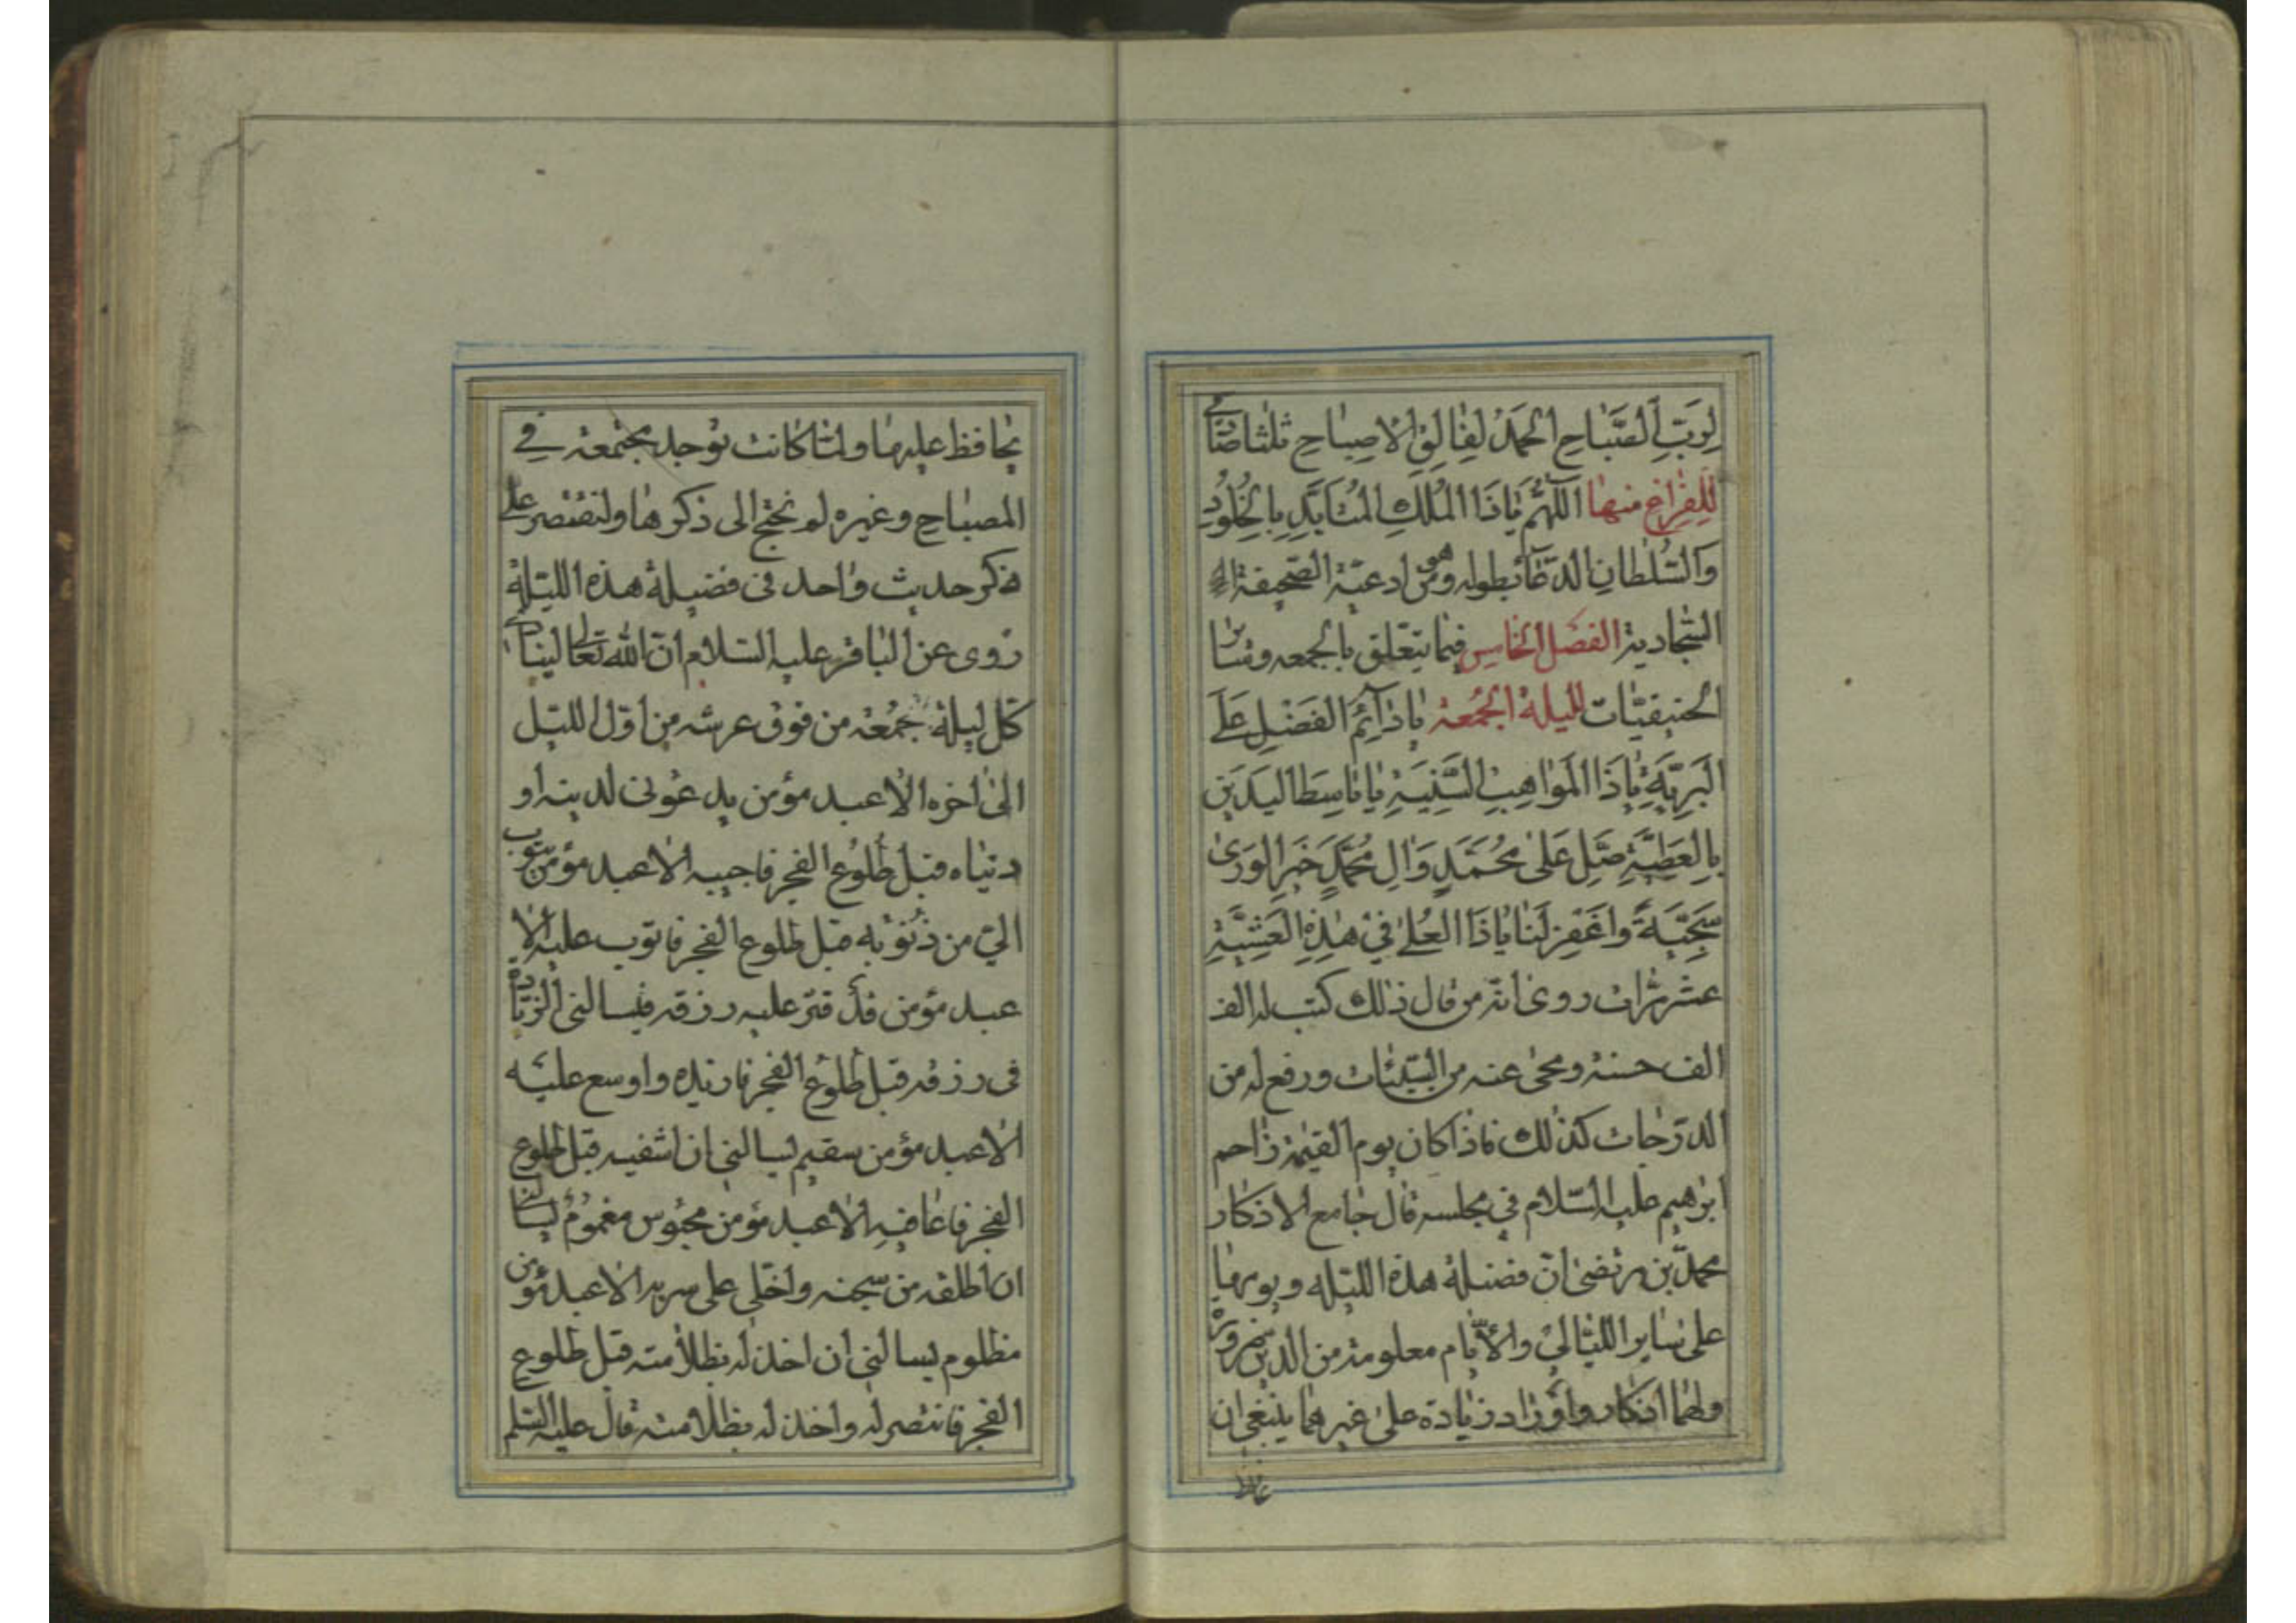 لِرَبِّ الصَّبَاحِ الحَمْدُ لِفٰالِقِ الاِصبٰاحِ ثلثا
لِلفِرٰاغِ منهٰا اللّٰهُمَّ يٰاذَا المُلكِ المُتَابِّدِ بِالخُلُودِ
وَالسُّلطٰانِ الدّعٰا بطوله وهو من ادعية الصّحيفة
السّجّادية الفصَل الخٰامِس فيمٰا يتعّلق بالجمعه وسٰائر
الحنيفيّات لليلة الجُمعَة يٰا دٰائِمُ الفَضْلِ عَلَى
البَرِيَّةِ يٰا ذَا المَوٰاهِبِ السَّنِيَّةِ يٰا بٰاسِطَ اليَدَينِ
بِالعَطِيَّةِ صَلِّ عَلىٰ مُحَمَّدٍ وَاٰلِ مُحَمَّدٍ خَيرِ الوَرىٰ
سَجِيَّةً وَاغفِر لَنٰا يٰاذَا العُلىٰ فيِ هٰذِهِ العَشِيَّةِ
عشر مرّات روى انّه من قال ذٰلك كتب له الف
الف حسنة ومحى عنه من السّيّئات ورفع له من
الدّرجٰات كذٰلك فاذا كان يوم القيٰمة زٰاحم
ابرٰهيم عليه السّلام في مجلسه قال جٰامع الاذكار
محمّد بن مرتضىٰ انّ فضيلة هذه الليّله ويومهٰا
على سٰاير الليٰالي والأيّام معلومة من الدين ضرورة
ولهٰما اذكار واورٰاد زيٰادة علىٰ غيرهما ينبغى ان
يحٰافظ عليهٰا ولمّا كانت توجد مجتمعة فى
المصبٰاح وغيره لم نحتج الى ذكرهٰا ولنقتصر على
ذكر حديث وٰاحد فى فضيلة هذه الليّلة
رُوى عن البٰاقر عليه السّلام انّ الله تعٰالى لينٰادى
كلّ ليلة جمُعة من فوق عرشه من اوّل الليّل
الىٰ اخره الاٰ عبد مؤمن يدعُونى لدينه او
دنيٰاه قبل طلُوع الفجر فاجيبه الاٰ عبد مؤمن يتوب
الىّ من ذنُوبه قبل طلوع الفجر فاتوب عليه الاٰ
عبد مؤمن قد قترّ عليه رزقه فيسالنى الزيٰادة
فى رزقه قبل طلُوع الفجر فازيده واوسع عليه
الاٰ عبد مؤمن سقيم يسالنى ان اشفيه قبل طلوع
الفجر فاعٰافيه الاٰ عبد مؤمن محبوُس مغمُومٌ يسٰالنى
ان اطلقه من سجنه واخلّى على سربه الاٰ عبد مؤمن
مظلوم يسالنى ان اخذ له بظلاٰمته قبل طلوع
الفجر فانتصر له واخذ له بظلاٰمته قال عليه السّلم